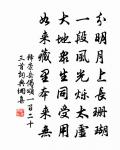 分明月上長珊瑚
一段風光爍太虛
大地眾生同受用
如來藏里本來無
釋崇岳偈頌一百二十
三首詞典網集